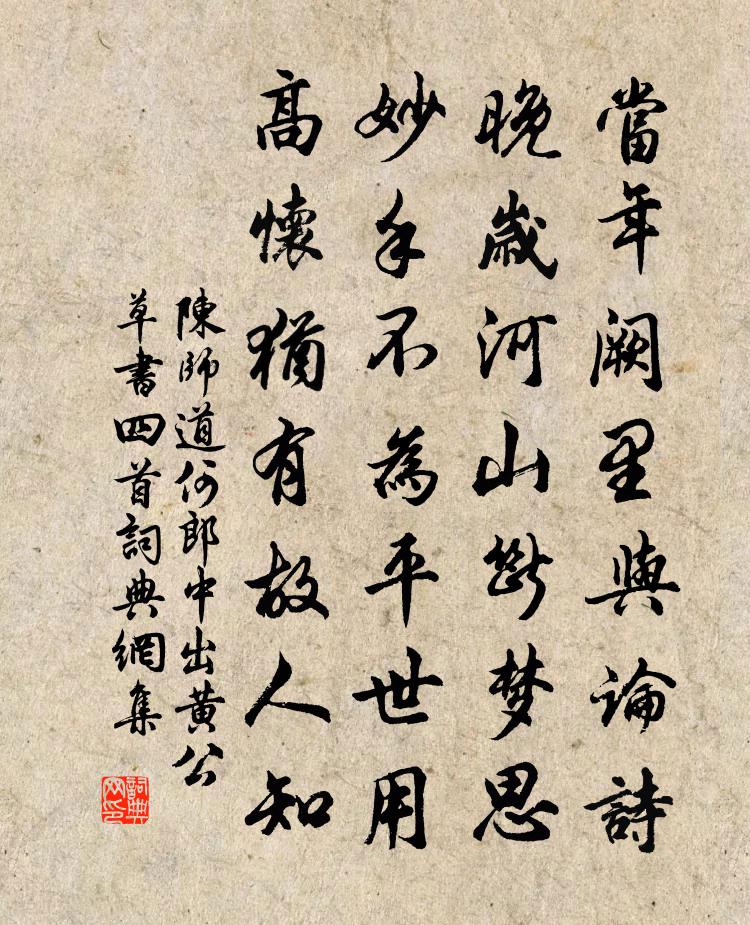 當年闕里與論詩
晚歲河山斷梦思
妙手不為平世用
高懷猶有故人知
陳師道何郎中出黄公
草書四首詞典網集
詞典
网印